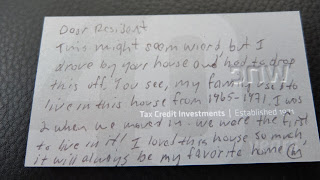 Dear Resident
This might seem wierd, but I
drove by your house and had to drop
this off. You see, my family used to
live in this house from 1965-1971. I was
Tax Credit Investments | Established 19
2 when we moved in - we were the first
to live in it! I loved this house so much,
it will always be my favorite home